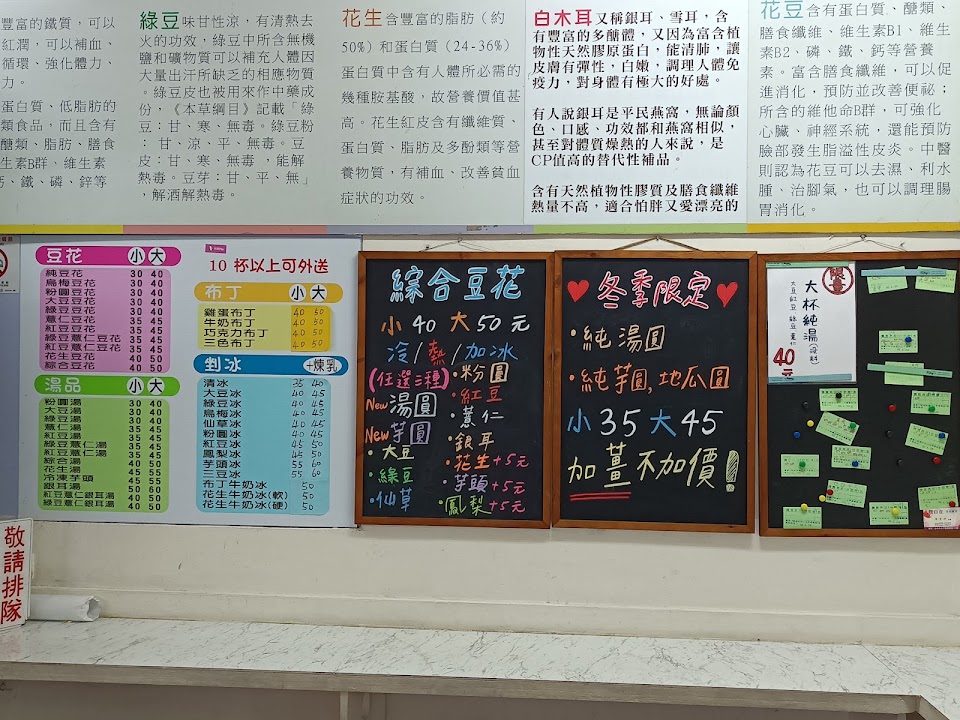 豐富的鐵質，可以
紅潤，可以補血、
循環、強化體力、
力。
蛋白質、低脂肪的
類食品，而且含有
醣類、脂肪、膳食
生素B群、維生素
鈣、鐵、磷、鋅等
綠豆 味甘性涼，有清熱去
火的功效，綠豆中所含無機
鹽和礦物質可以補充人體因
大量出汗所缺乏的相應物質
。綠豆皮也被用來作中藥成
份，《本草綱目》記載「綠
豆：甘、寒、無毒。綠豆粉
：甘、涼、平、無毒。豆
皮：甘、寒、無毒，能解
熱毒。豆芽：甘、平、無」
，解酒解熱毒。
花生 含豐富的脂肪（約
50%）和蛋白質（24-36%）
蛋白質中含有人體所必需的
幾種胺基酸，故營養價值甚
高。花生紅皮含有纖維質、
蛋白質、脂肪及多酚類等營
養物質，有補血、改善貧血
症狀的功效。
白木耳 又稱銀耳、雪耳，含
有豐富的多醣體，又因為富含植
物性天然膠原蛋白，能清肺，讓
皮膚有彈性，白嫩，調理人體免
疫力，對身體有極大的好處。
有人說銀耳是平民燕窩，無論顏
色、口感、功效都和燕窩相似，
甚至對體質燥熱的人來說，是
CP值高的替代性補品。
含有天然植物性膠質及膳食纖維
熱量不高，適合怕胖又愛漂亮的
花豆 含有蛋白質、醣類、
膳食纖維、維生素B1、維生
素B2、磷、鐵、鈣等營養
素。富含膳食纖維，可以促
進消化，預防並改善便祕；
所含的維他命B群，可強化
心臟、神經系統，還能預防
臉部發生脂溢性皮炎。中醫
則認為花豆可以去濕、利水
腫、治腳氣，也可以調理腸
胃消化。
豆花 小 大
純豆花 30 40
烏梅豆花 30 40
粉圓豆花 30 40
綠豆豆花 30 40
大豆豆花 35 45
薏仁豆花 35 45
紅豆豆花 35 45
綠豆薏仁豆花 35 45
紅豆薏仁豆花 35 45
花生豆花 40 50
綜合豆花 40 50
湯品 小 大
粉圓湯 30 40
大豆湯 30 40
綠豆湯 30 40
薏仁湯 35 45
紅豆湯 35 45
綠豆薏仁湯 35 45
紅豆薏仁湯 35 45
綜合湯 40 50
花生湯 45 55
冷凍芋頭 45 55
銀耳湯 50 60
紅豆薏仁銀耳湯 40 50
綠豆薏仁銀耳湯 40 50
10 杯以上可外送
布丁 小 大
雞蛋布丁 40 50
牛奶布丁 40 50
巧克力布丁 40 50
三色布丁 40 50
剉冰 +煉乳
清冰 35 40
大豆冰 40 45
綠豆冰 40 45
烏梅冰 40 45
仙草冰 40 45
粉圓冰 40 45
紅豆冰 45 50
鳳梨冰 45 50
芋頭冰 55 60
三豆冰 55 60
布丁牛奶冰 50
花生牛奶冰(軟) 50
花生牛奶冰(硬) 50
綜合豆花
小 40 大 50 元
冷/熱/加冰
(任選三種)
New 湯圓
New 芋圓
·大豆
·綠豆
·仙草
·粉圓
·紅豆
·薏仁
·銀耳
·花生+5元
·芋頭+5元
·鳳梨+5元
♥冬季限定♥
·純湯圓
·純芋圓,地瓜圓
小 35 大 45
加薑不加價！
大杯純湯
大豆 紅豆 綠豆 薏仁
40元
敬請排隊